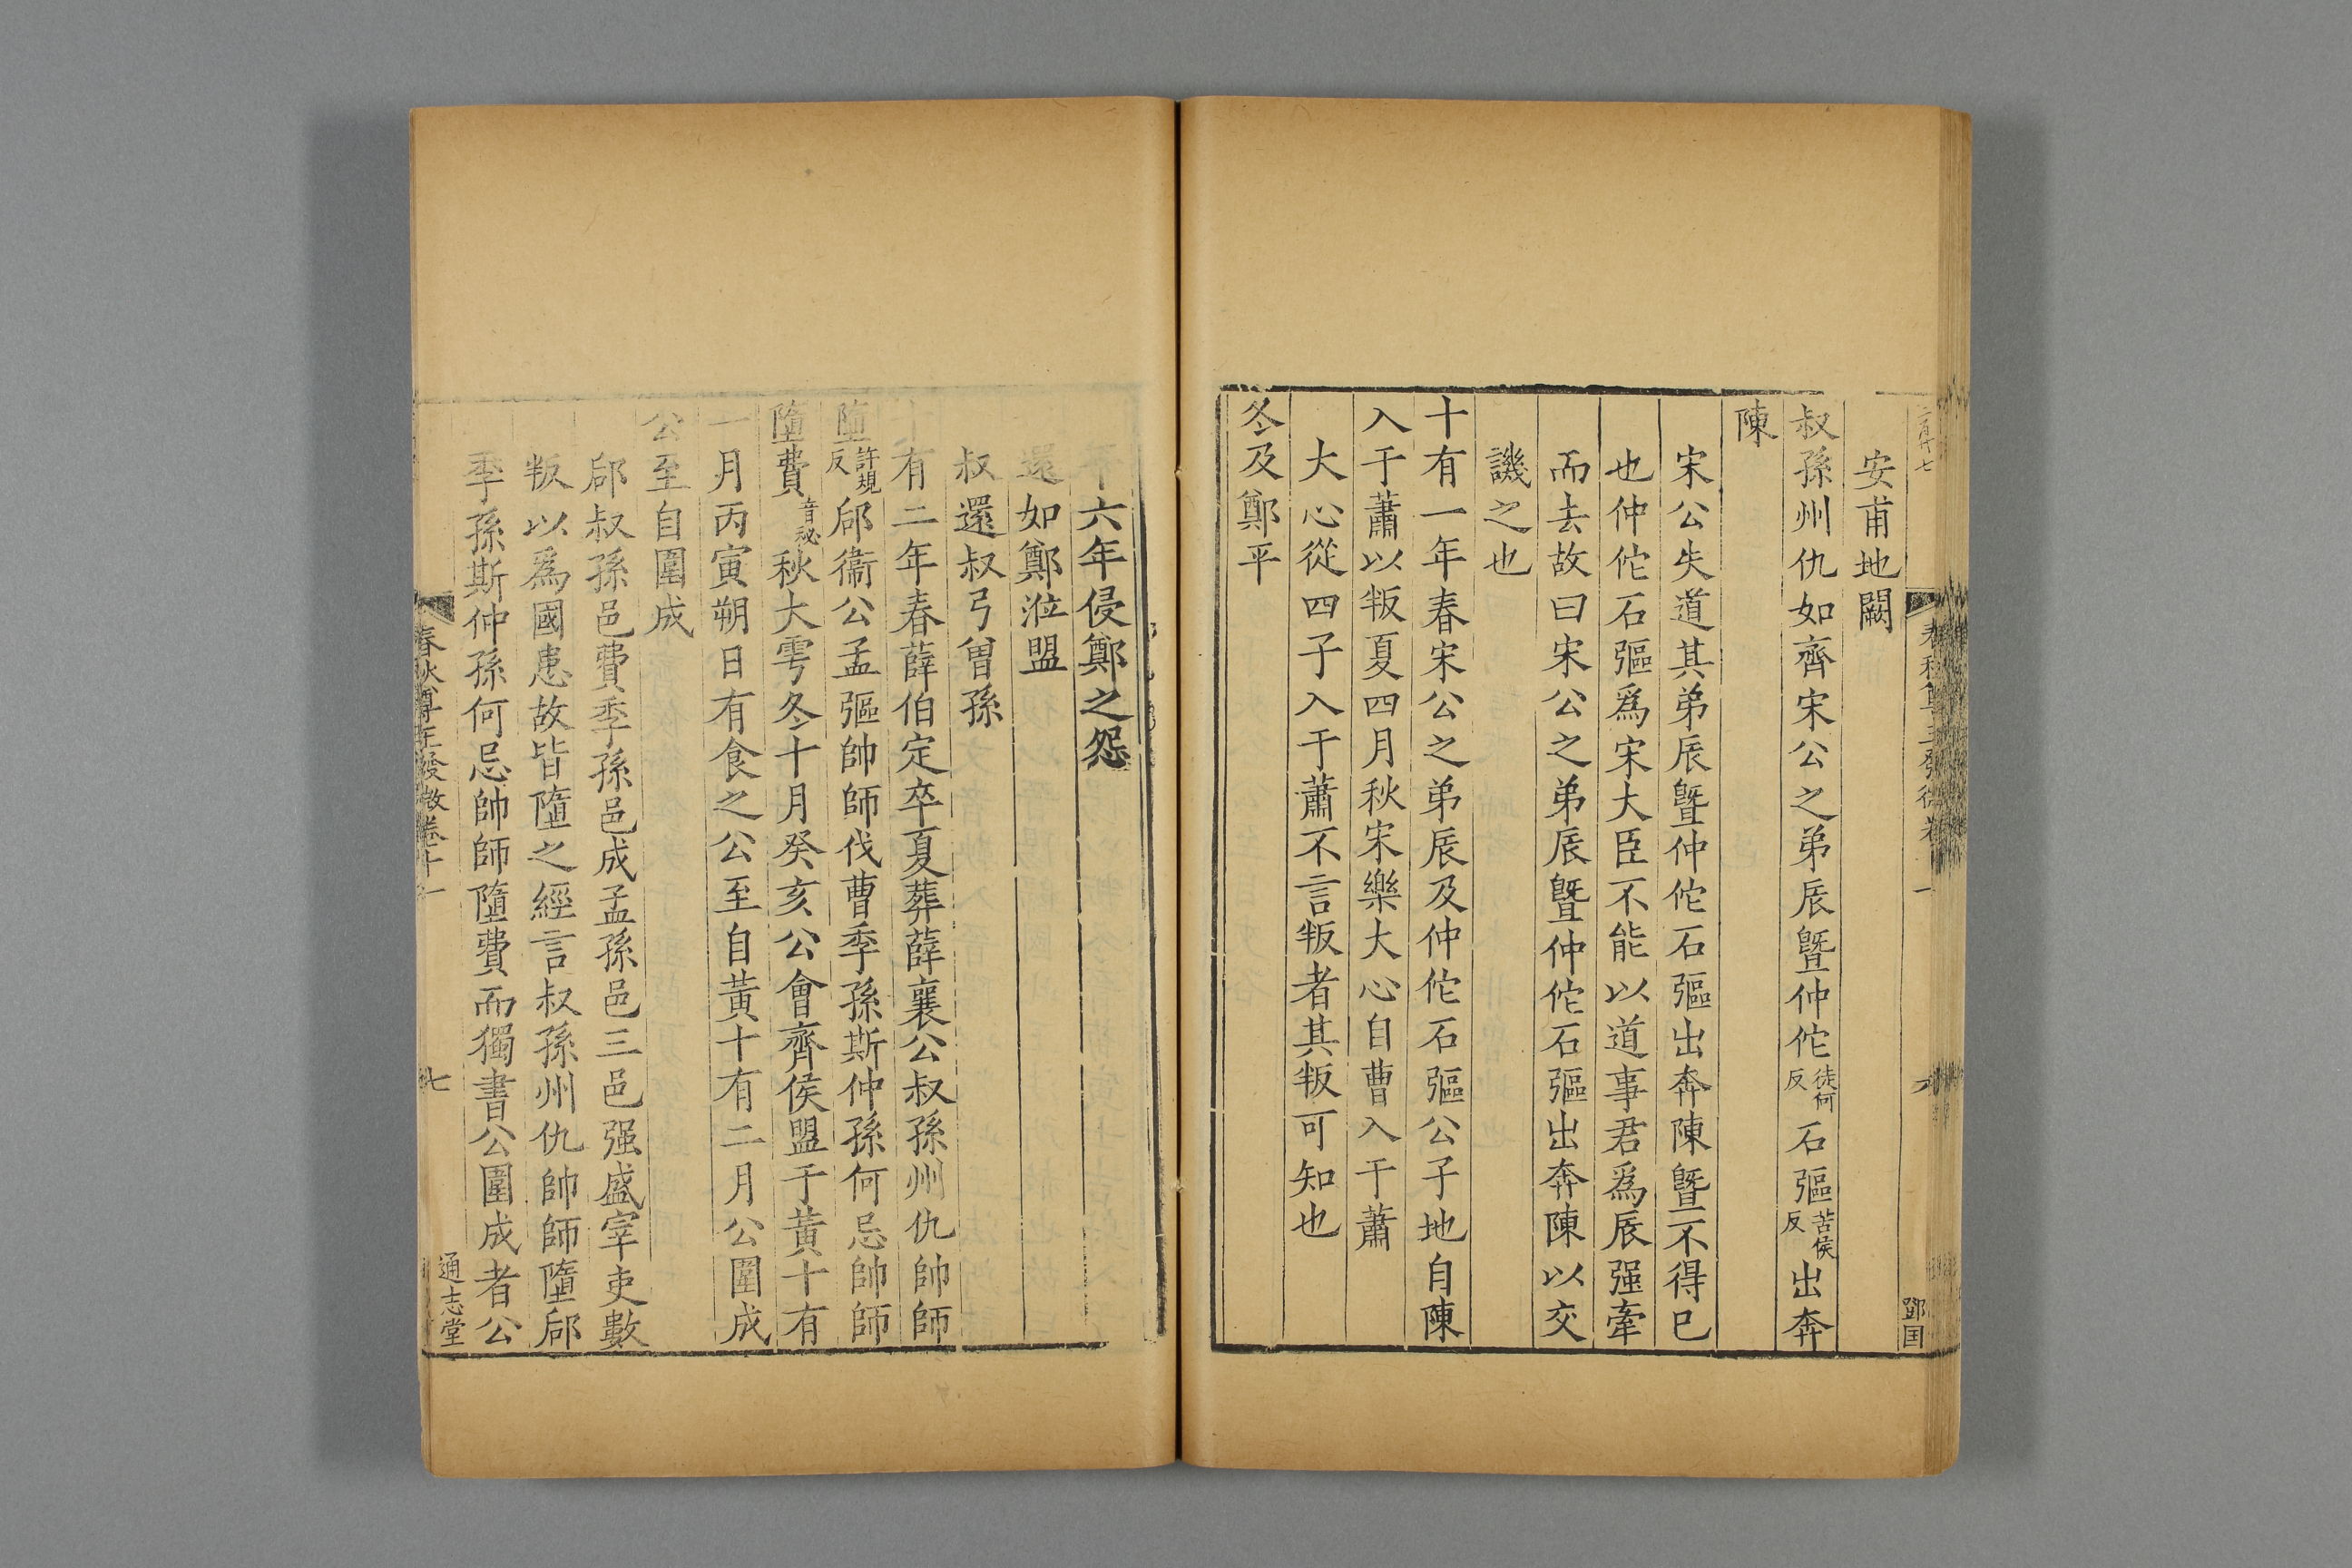 安甫地闕
叔孫州仇如齊宋公之弟辰曁仲佗徒何反石彄苦侯反出奔
陳
宋公失道其弟辰曁仲佗石彄出奔陳曁不得已
也仲佗石彄爲宋大臣不能以道事君爲辰强牽
而去故曰宋公之弟辰曁仲佗石彄出奔陳以交
譏之也
十有一年春宋公之弟辰及仲佗石彄公子地自陳
入于蕭以叛夏四月秋宋樂大心自曹入于蕭
大心從四子入于蕭不言叛者其叛可知也
冬及鄭平
平六年侵鄭之怨
還如鄭涖盟
叔還叔弓曾孫
十有二年春薛伯定卒夏葬薛襄公叔孫州仇帥師
墮許規反郈衞公孟彄帥師伐曹季孫斯仲孫何忌帥師
墮費音祕秋大雩冬十月癸亥公會齊侯盟于黃十有
一月丙寅朔日有食之公至自黃十有二月公圍成
公至自圍成
郈叔孫邑費季孫邑成孟孫邑三邑强盛宰吏數
叛以爲國患故皆墮之經言叔孫州仇帥師墮郈
季孫斯仲孫何忌帥師墮費而獨書公圍成者公
春秋尊王發微卷十一
七
通志堂